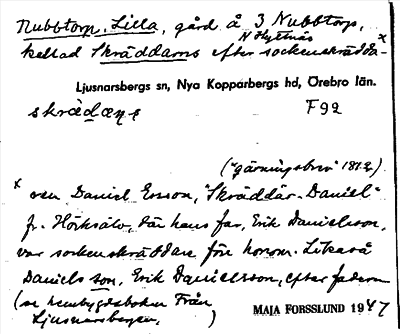 Nubbtorp, Lilla, gård å 3 Nubbtorp,
N Hyttnäs
kallad Skräddarns efter sockenskrädda- x
Ljusnarsbergs sn, Nya Kopparbergs hd, Örebro län.
F 92
("gärningsbrev" 1812)
x von Daniel Ersson, "Skräddar-Daniel"
fr. Hörksälv, där hans far, Erik Danielsson,
var sockenskräddare före honom. Likaså
Daniels son, Erik Danielsson, efter fadern
(se hembygdsboken Från
Ljusnarsbergen, )
MAJA FORSSLUND 1947